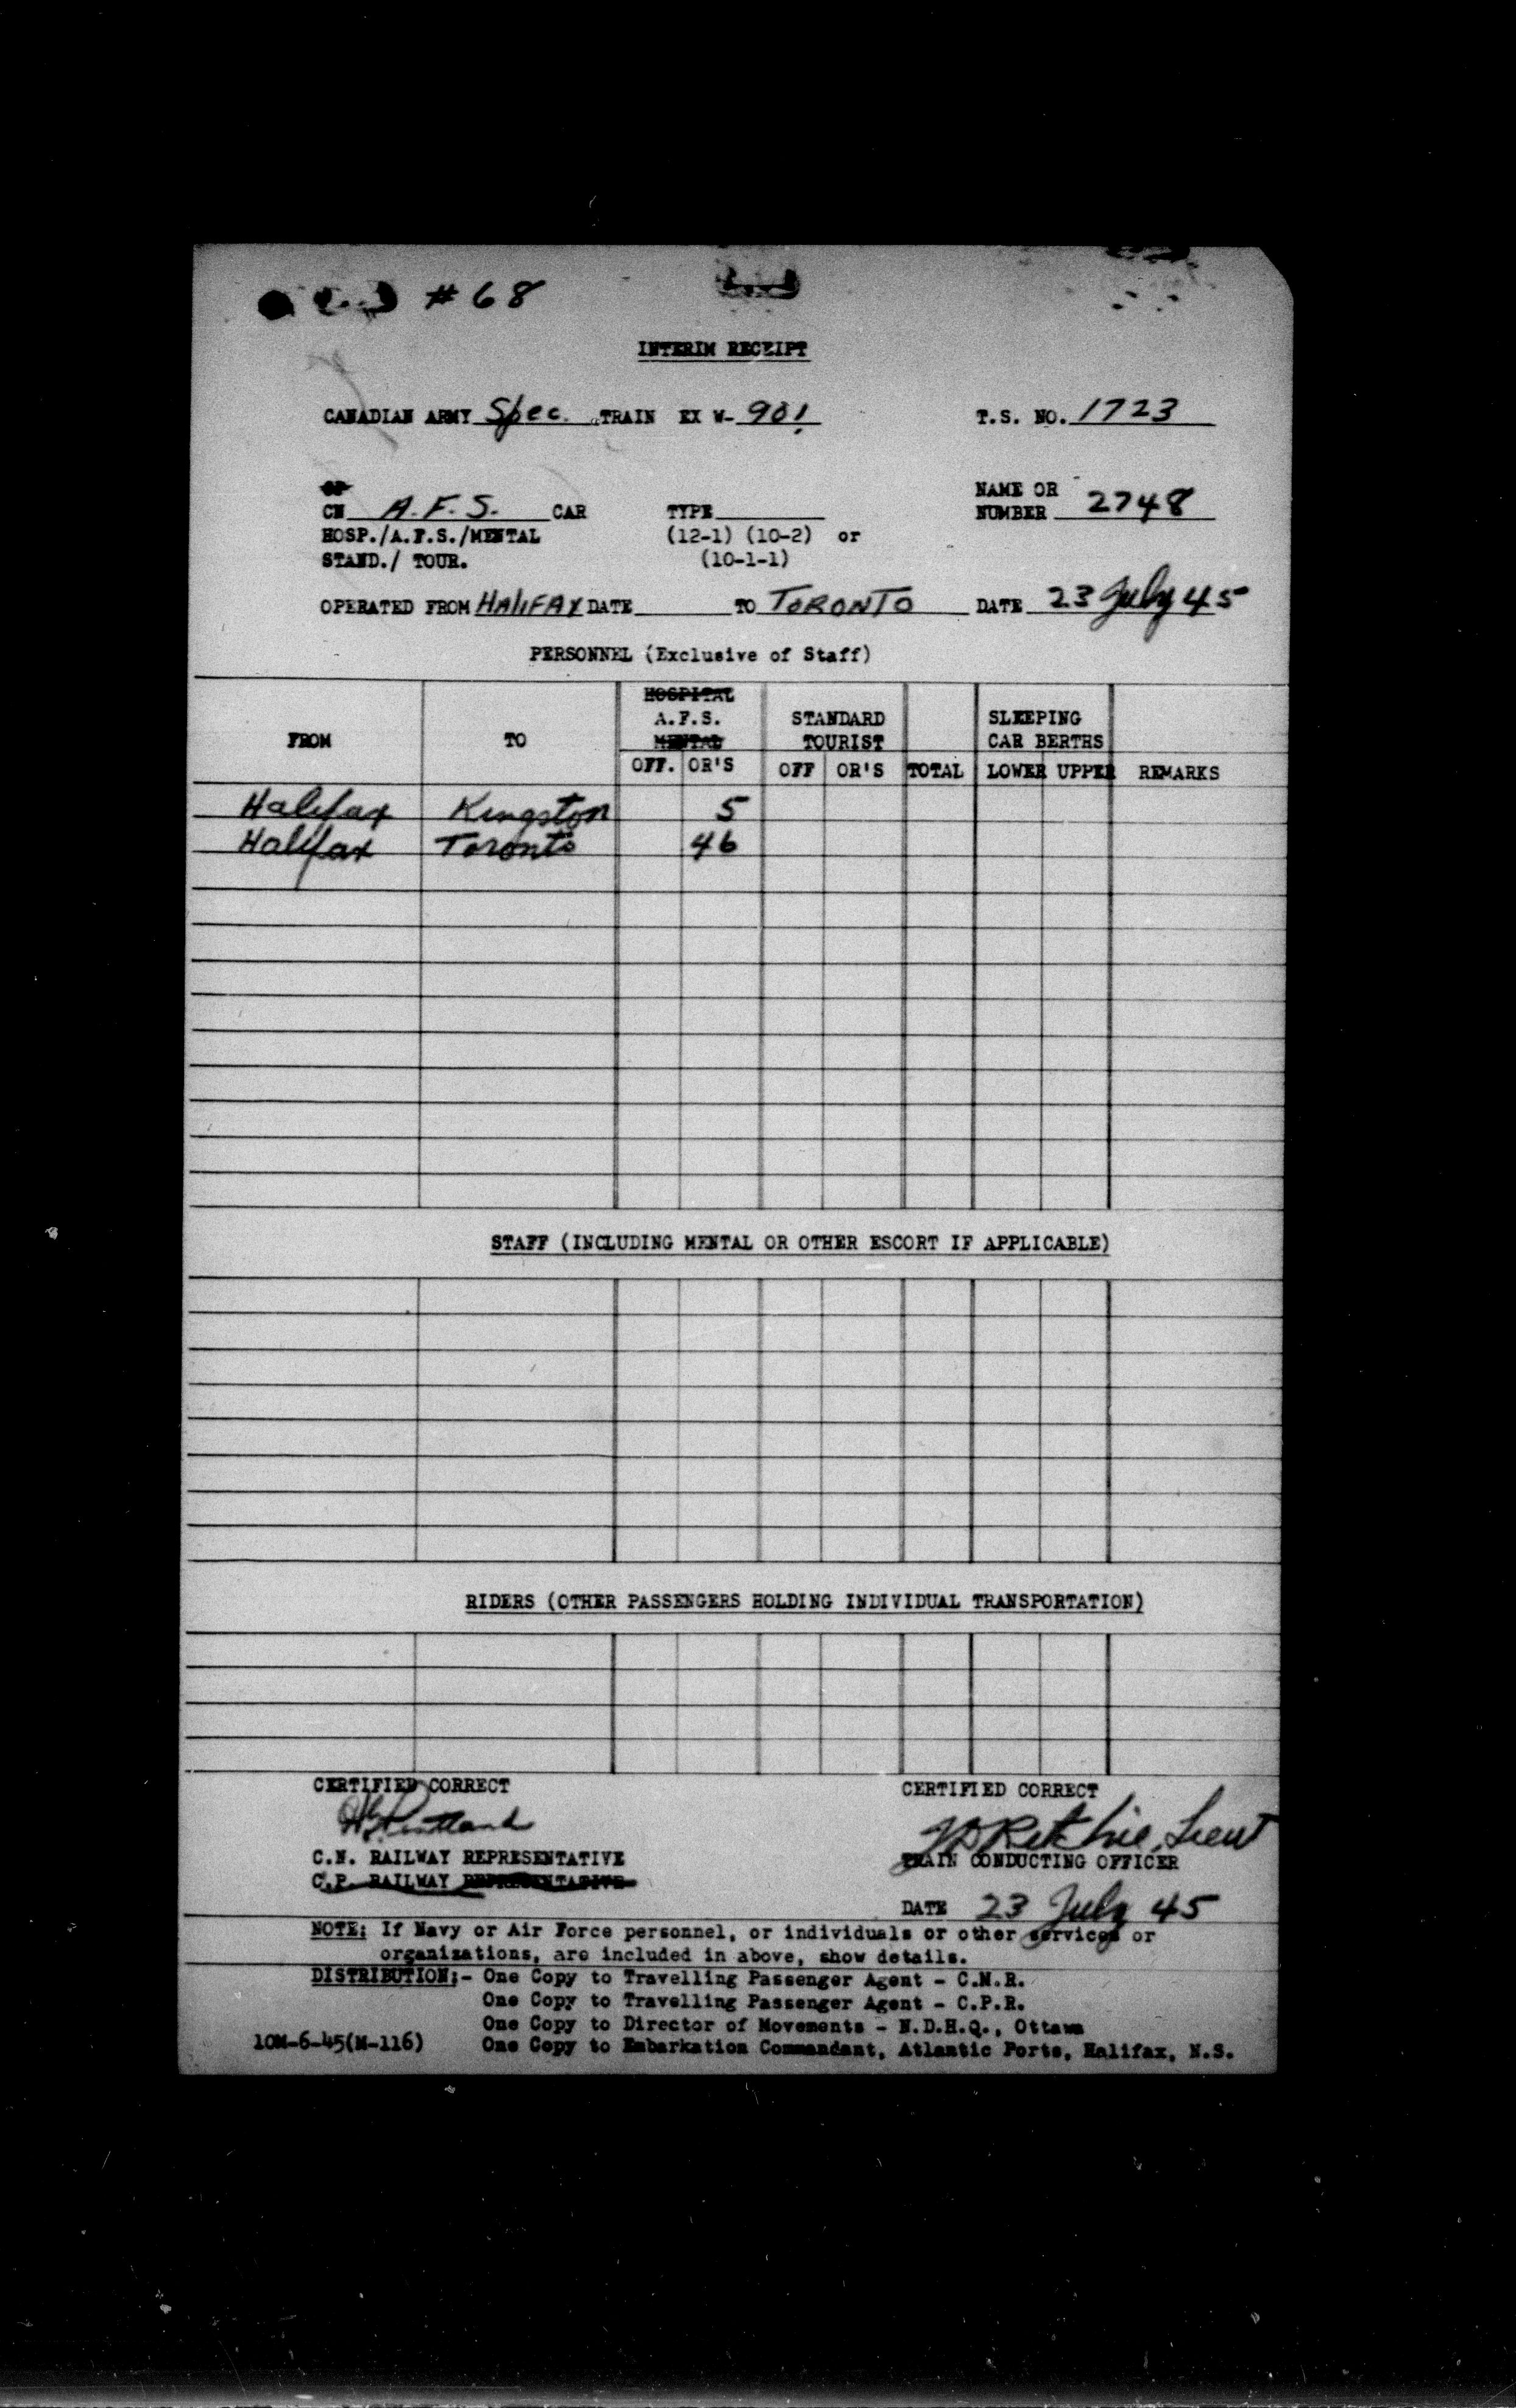 #68
INTERIM RECEIPT
CANADIAN ARMY Spec. TRAIN EX W- 901 T.S. NO. 1723
CP
CN A.F.S. CAR TYPE NAME OR NUMBER 2748
HOSP./A.F.S./MENTAL (12-1) (10-2) or
STAND./ TOUR. (10-1-1)
OPERATED FROM HALIFAX DATE TO TORONTO DATE 23 July 45
PERSONNEL (Exclusive of Staff)
FROM TO HOSPITAL A.F.S. MENTAL STANDARD TOURIST SLEEPING CAR BERTHS
OFF. OR'S OFF OR'S TOTAL LOWER UPPER REMARKS
Halifax Kingston 5
Halifax Toronto 46
STAFF (INCLUDING MENTAL OR OTHER ESCORT IF APPLICABLE)
RIDERS (OTHER PASSENGERS HOLDING INDIVIDUAL TRANSPORTATION)
CERTIFIED CORRECT CERTIFIED CORRECT
Ritchie, Lieut
C.N. RAILWAY REPRESENTATIVE TRAIN CONDUCTING OFFICER
C.P. RAILWAY REPRESENTATIVE
DATE 23 July 45
NOTE: If Navy or Air Force personnel, or individuals or other services or
organizations, are included in above, show details.
DISTRIBUTION:- One Copy to Travelling Passenger Agent - C.N.R.
One Copy to Travelling Passenger Agent - C.P.R.
One Copy to Director of Movements - N.D.H.Q., Ottawa
10M-6-45(M-116) One Copy to Embarkation Commandant, Atlantic Ports, Halifax, N.S.